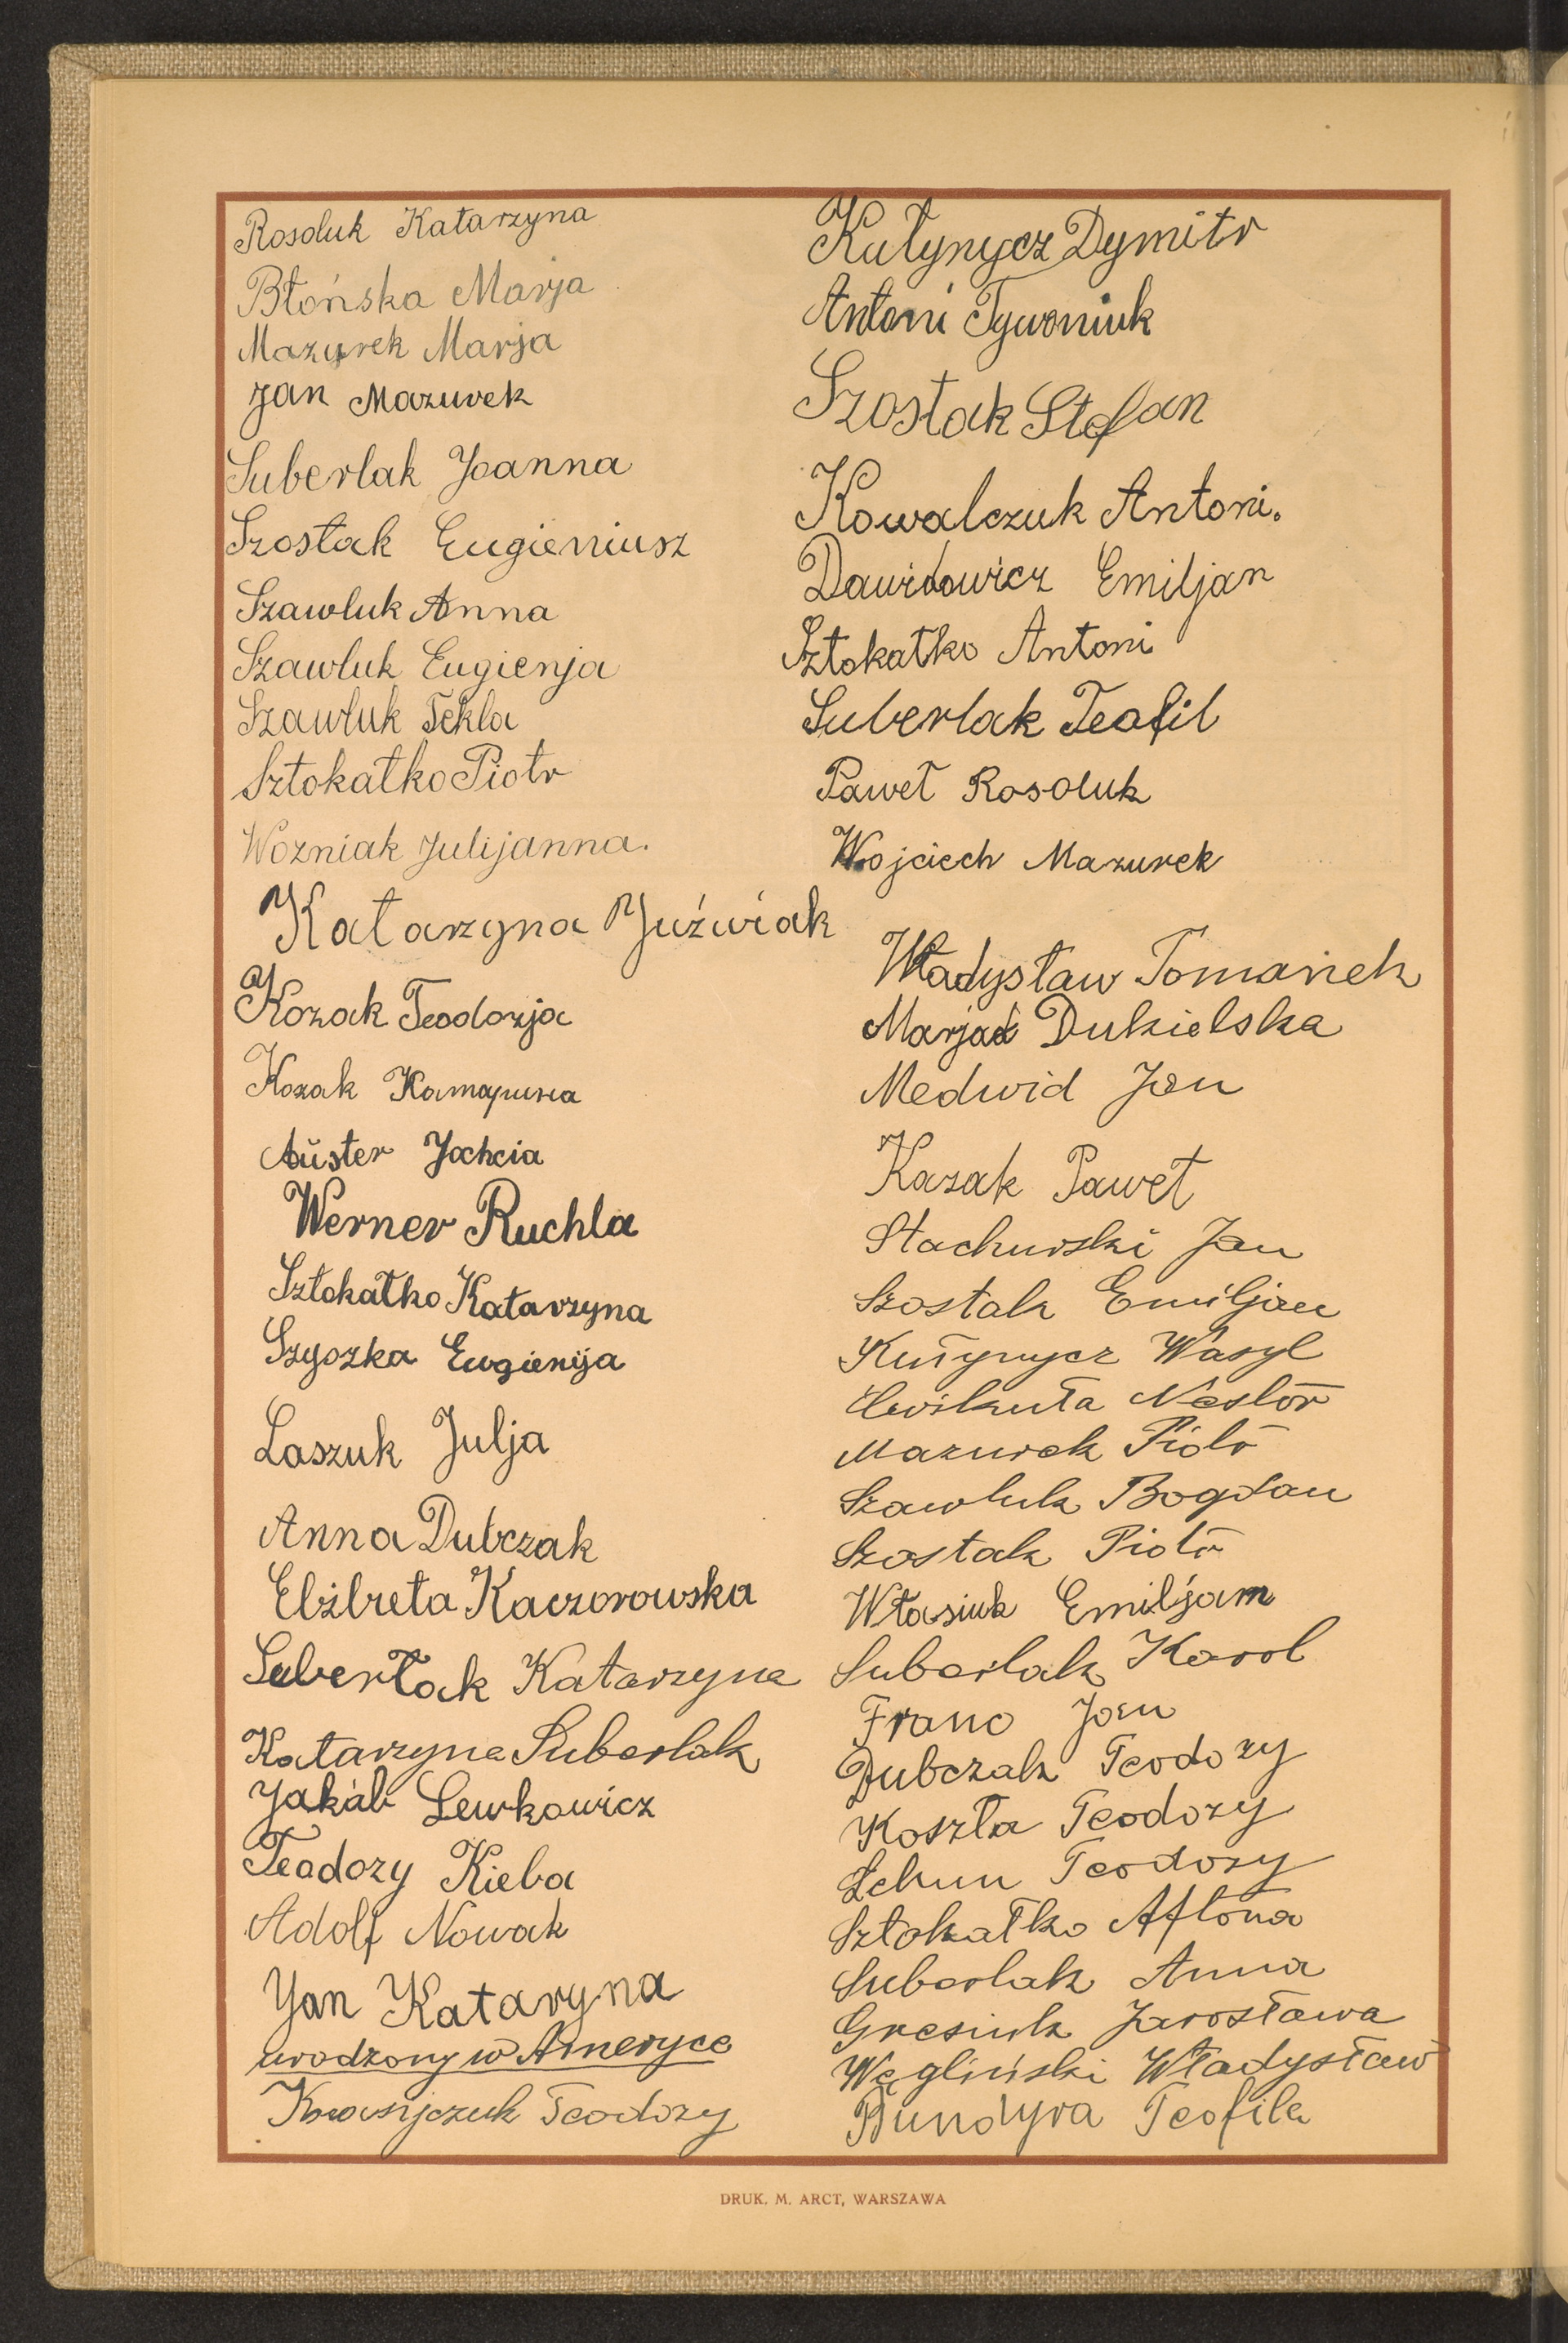 Rosoluk Katarzyna
Błońska Marja
Mazurek Marja
Jan Mazurek
Suberlak Joanna
Szostak Eugieniusz
Szawluk Anna
Szawluk Eugienja
Szawluk Tekla
Sztokałko Piotr
Wozniak Julijanna.
Katarzyna Juźwiak
Kozak Teodozja
Kozak Катарина
Auster Jochcia
Werner Ruchla
Sztokałko Katarzyna
Szyszka Eugienija
Laszuk Julja
Anna Dubczak
Elżbieta Kaczorowska
Suberlak Katarzyna
Katarzyna Suberlak
Jakób Lewkowicz
Teodozy Kieba
Adolf Nowak
Jan Kataryna
urodzony w Ameryce
Teodozy
Kutynycz Dymitr
Antoni Tywoniuk
Szostak Stefan
Kowalczuk Antoni.
Dawidowicz Emiljan
Sztokałko Antoni
Suberlak Teofil
Paweł Rosoluk
Wojciech Mazurek
Władysław Tomanek
Marja Dukielska
Medwid Jan
Kazak Paweł
Stachurski Jan
Szostak Emiljan
Kutynycz Wasyl
Nestor
Mazurek Piotr
Szawluk Bogdan
Szostak Piotr
Własiuk Emiljam
Suberlak Karol
Franc Jan
Dubczak Teodozy
Koszła Teodozy
Teodozy
Sztokałko Aftona
Suberlak Anna
Gresiuk Jarosława
Węgliński Władysław
Dundyra Teofila
DRUK. M. ARCT, WARSZAWA